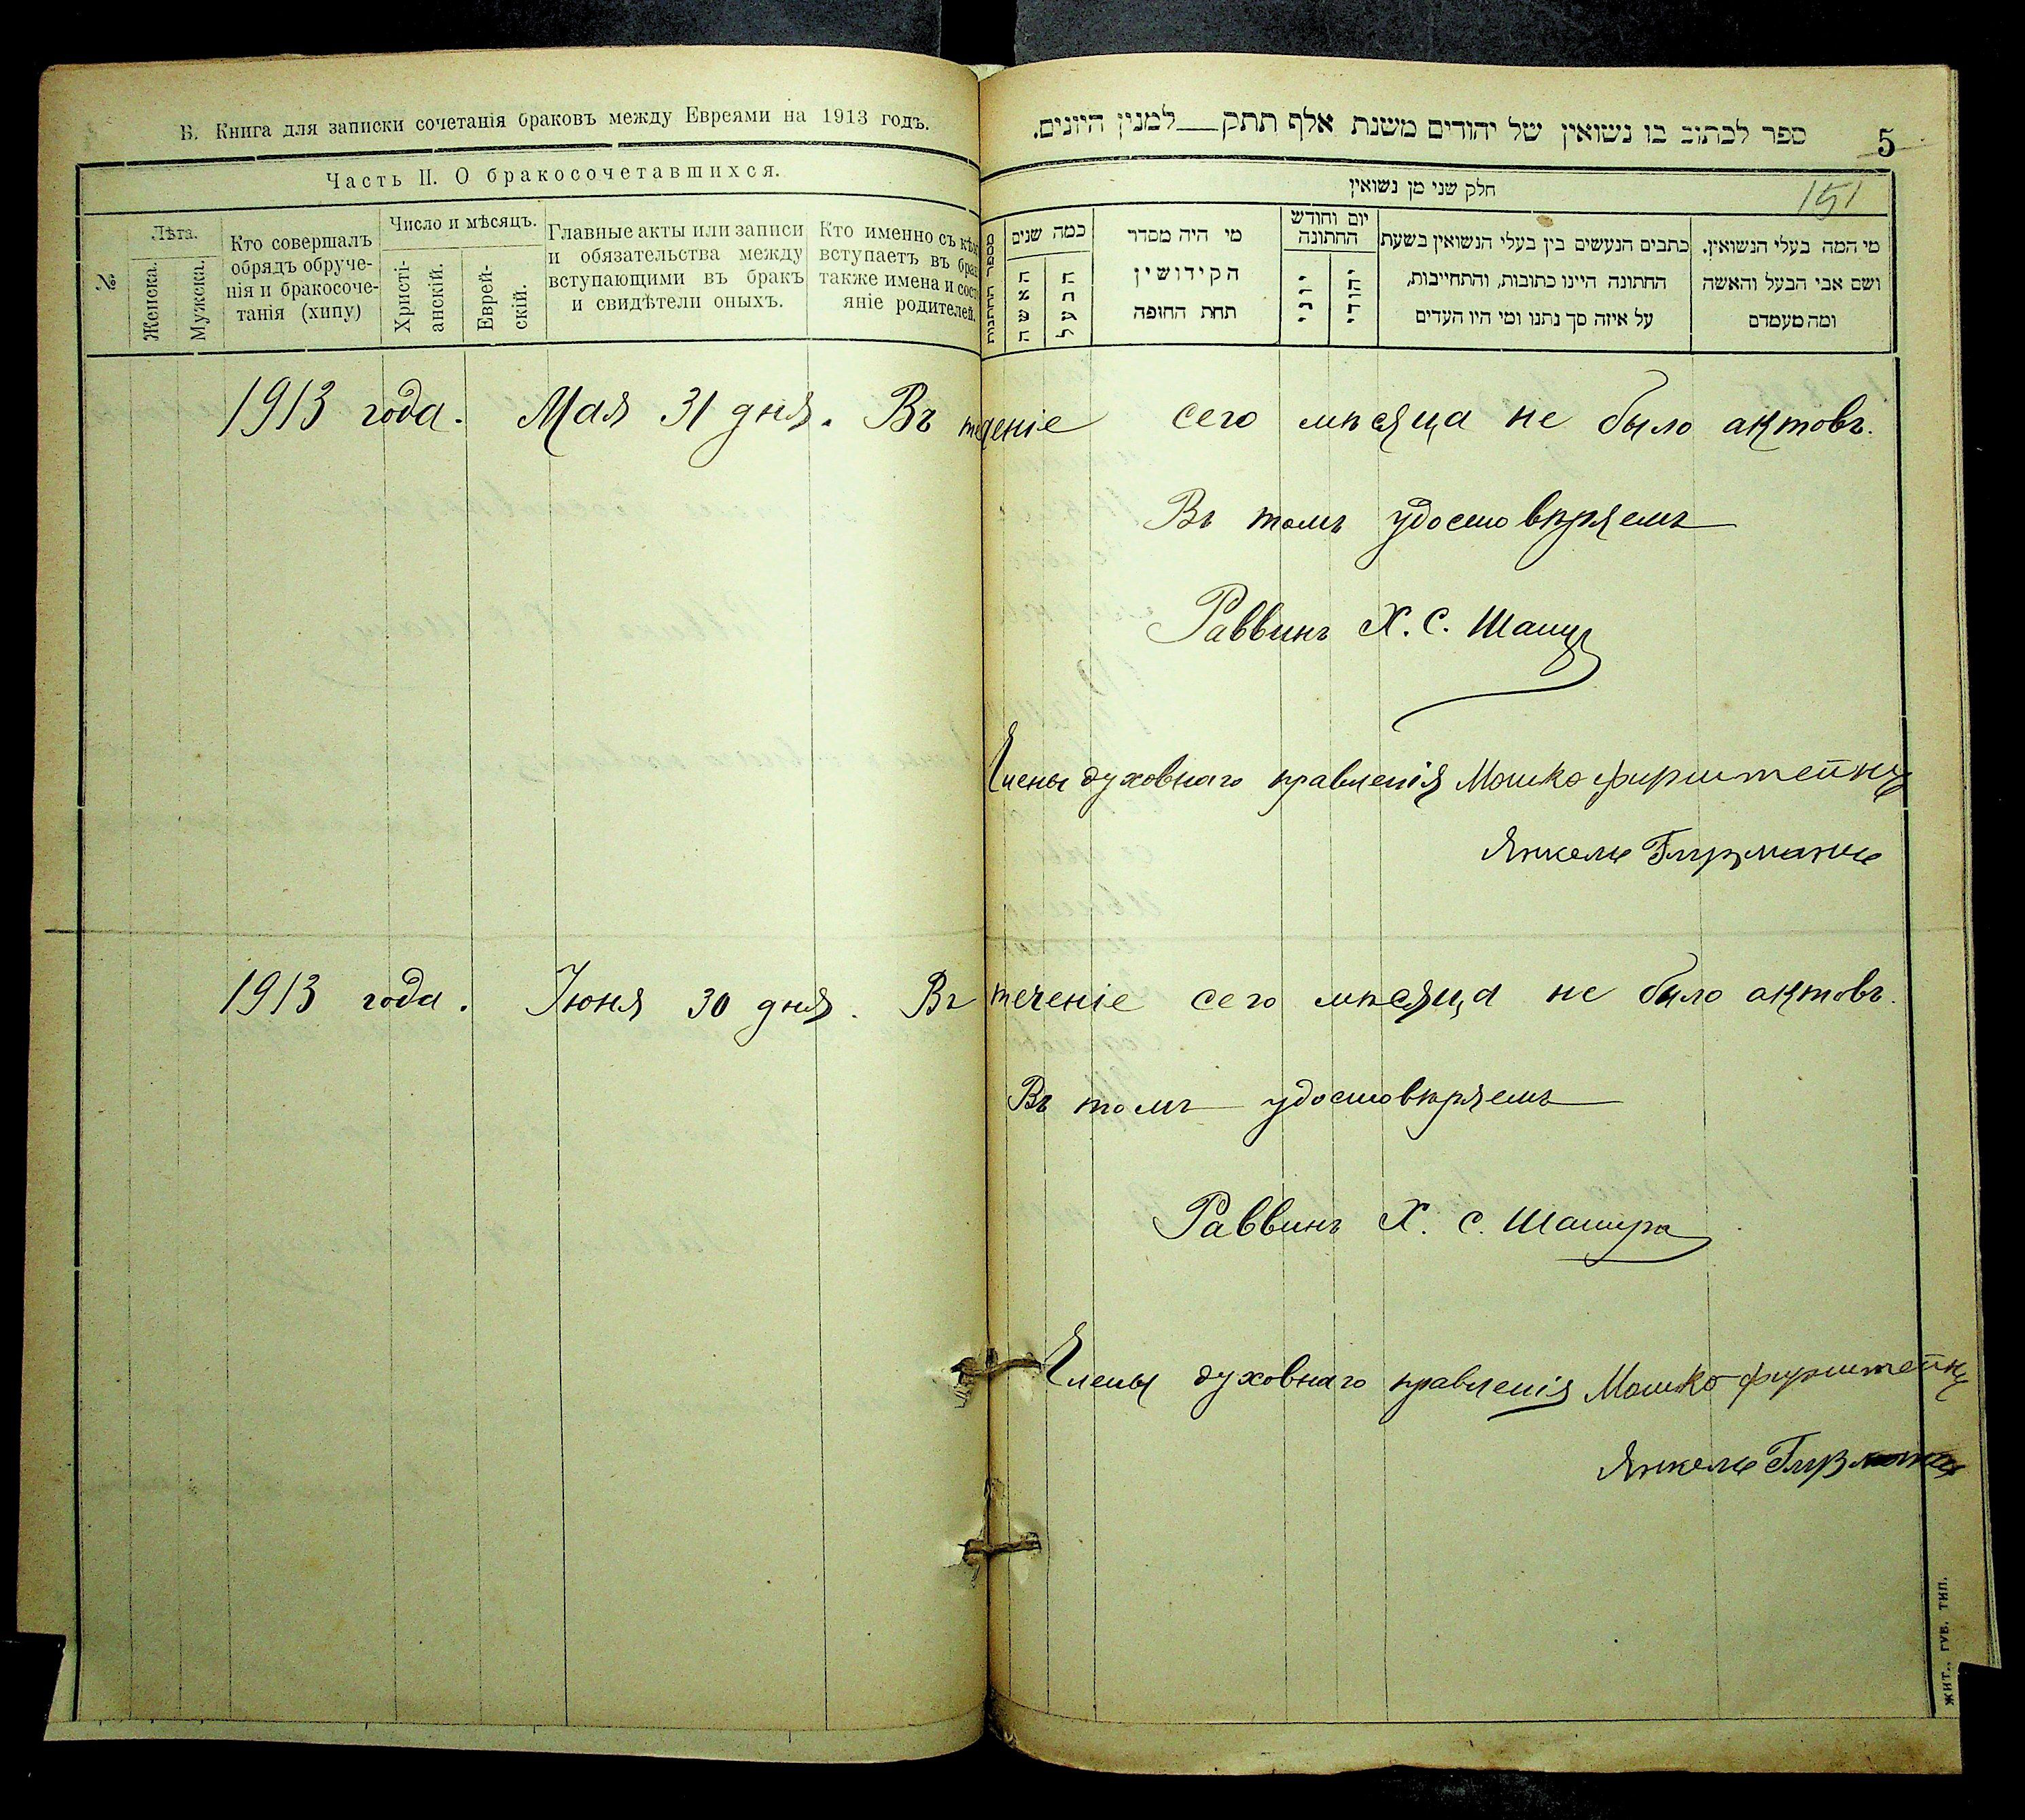 Б. Книга для записки сочетанія браковъ между Евреями на 1913 годъ.
Часть II. О бракосочетавшихся.
№
Лѣта.
Женска.
Мужска.
Кто совершалъ
обрядъ обруче-
нія и бракосоче-
танія (хипу)
Число и мѣсяцъ.
Христі-
анскій.
Еврей-
скій.
Главные акты или записи
и обязательства между
вступающими въ бракъ
и свидѣтели оныхъ.
Кто именно съ кѣмъ
вступаетъ въ бра
также имена и сост
яніе родителей.
ספר לכתוב בו נשואין של יהודים משנת אלף תתק___למנין היונים.
5
151
חלק שני מן נשואין
מי המה בעלי הנשואין.
ושם אבי הבעל והאשה
ומה מעמדם
כתבים הנעשים בין בעלי הנשואין בשעת
החתונה היינו כתובות, והתחייבות,
על איזה סך נתנו ומי היו העדים
יום וחודש
החתונה
יהודי
יוני
מי היה מסדר
הקידושין
תחת החופה
כמה שנים
הבעל
האשה
מספר החתונות
1913 года. Мая 31 дня. Въ теченіе сего мѣсяца не было актовъ.
Въ томъ удостовѣряемъ
Раввинъ Х. С. Шапир
Члены духовнаго правленія Мошко Фирштейнъ
Янкель Глузманъ
1913 года. Іюня 30 дня. Въ теченіе сего мѣсяца не было актовъ.
Въ томъ удостовѣряемъ
Раввинъ Х. С. Шапира
Члены духовнаго правленія Мошко Фирштейнъ
Янкель Глузманъ
ЖИТ., ГУБ. ТИП.